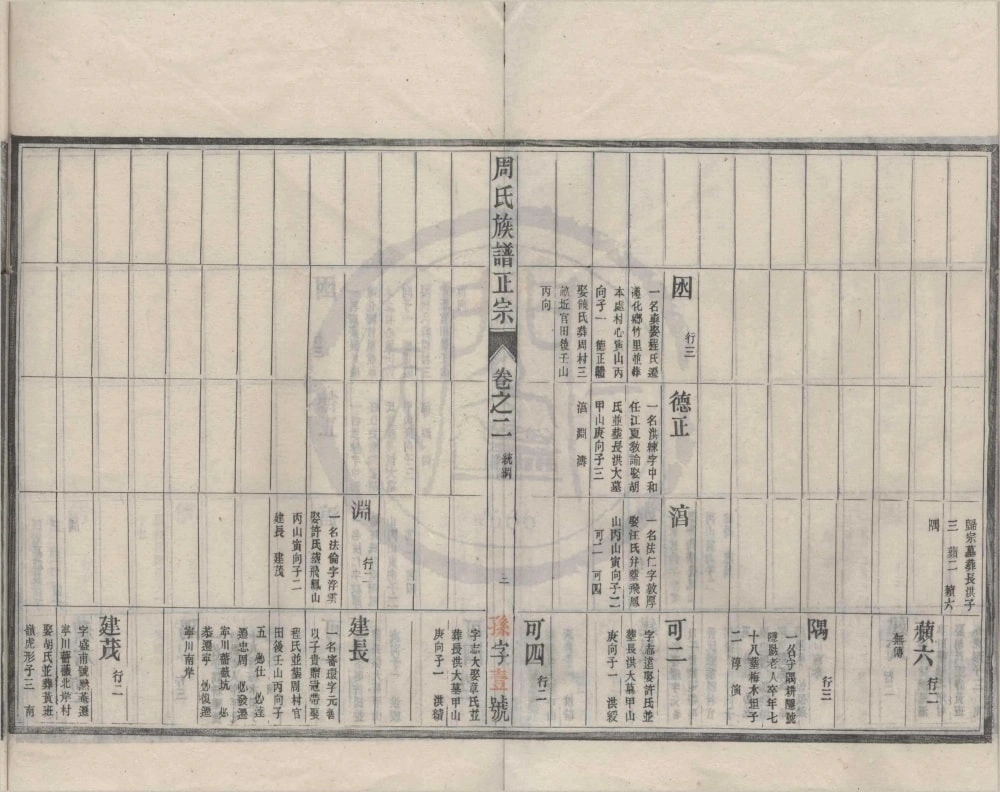 歸宗墓葬長洪子
三 蘋二 蘋六
隅
蘋六 行二
無傳
隅 行三
一名守隅耕隱號
隱嚴老人卒年七
十八葬梅木坦子
二 淳 演
囦 行三
遵化鄉竹里並葬
本處村心嶌山丙
向子一 德正
娶饒氏葬周村三
畝坵官田後壬山
丙向
德正
一名洪練字中和
任江夏教諭娶胡
氏並葬長洪大墓
甲山庚向子三
淯 淵 濤
淯
一名法仁字敦厚
娶汪氏并葬飛鳳
山丙山寅向子二
可二 可四
可二
字志遠娶許氏並
葬長洪大墓甲山
庚向子一 洪綬
可四 行二
字志大娶章氏並
葬長洪大墓甲山
庚向子一 洪績
周氏族譜正宗
卷之二 統溯
二
孫字壹號
淵 行二
一名法倫字浮雲
娶許氏葬飛鳳山
丙山寅向子二
建長 建茂
建長
一名審環字元善
以子貴贈冠帶娶
程氏並葬周村官
田後壬山丙向子
五 必仕 必達
遷忠周 必發遷
寧川薔嶶坑 必
恭遷寧 必復遷
寧川南岸
建茂 行二
字盛甫號默菴遷
寧川薔嶶北岸村
娶胡氏並葬黃班
嶺虎形子三 南